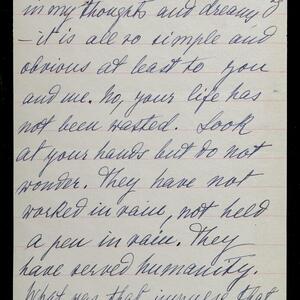 in my thoughts and dreams
- it is all so simple and
obvious at least to you
and me. No, your life has
not been wasted. Look
at your hands but do not
wonder. They have not
worked in vain, not held
a pen in vain. They
have served humanity.
What was that that